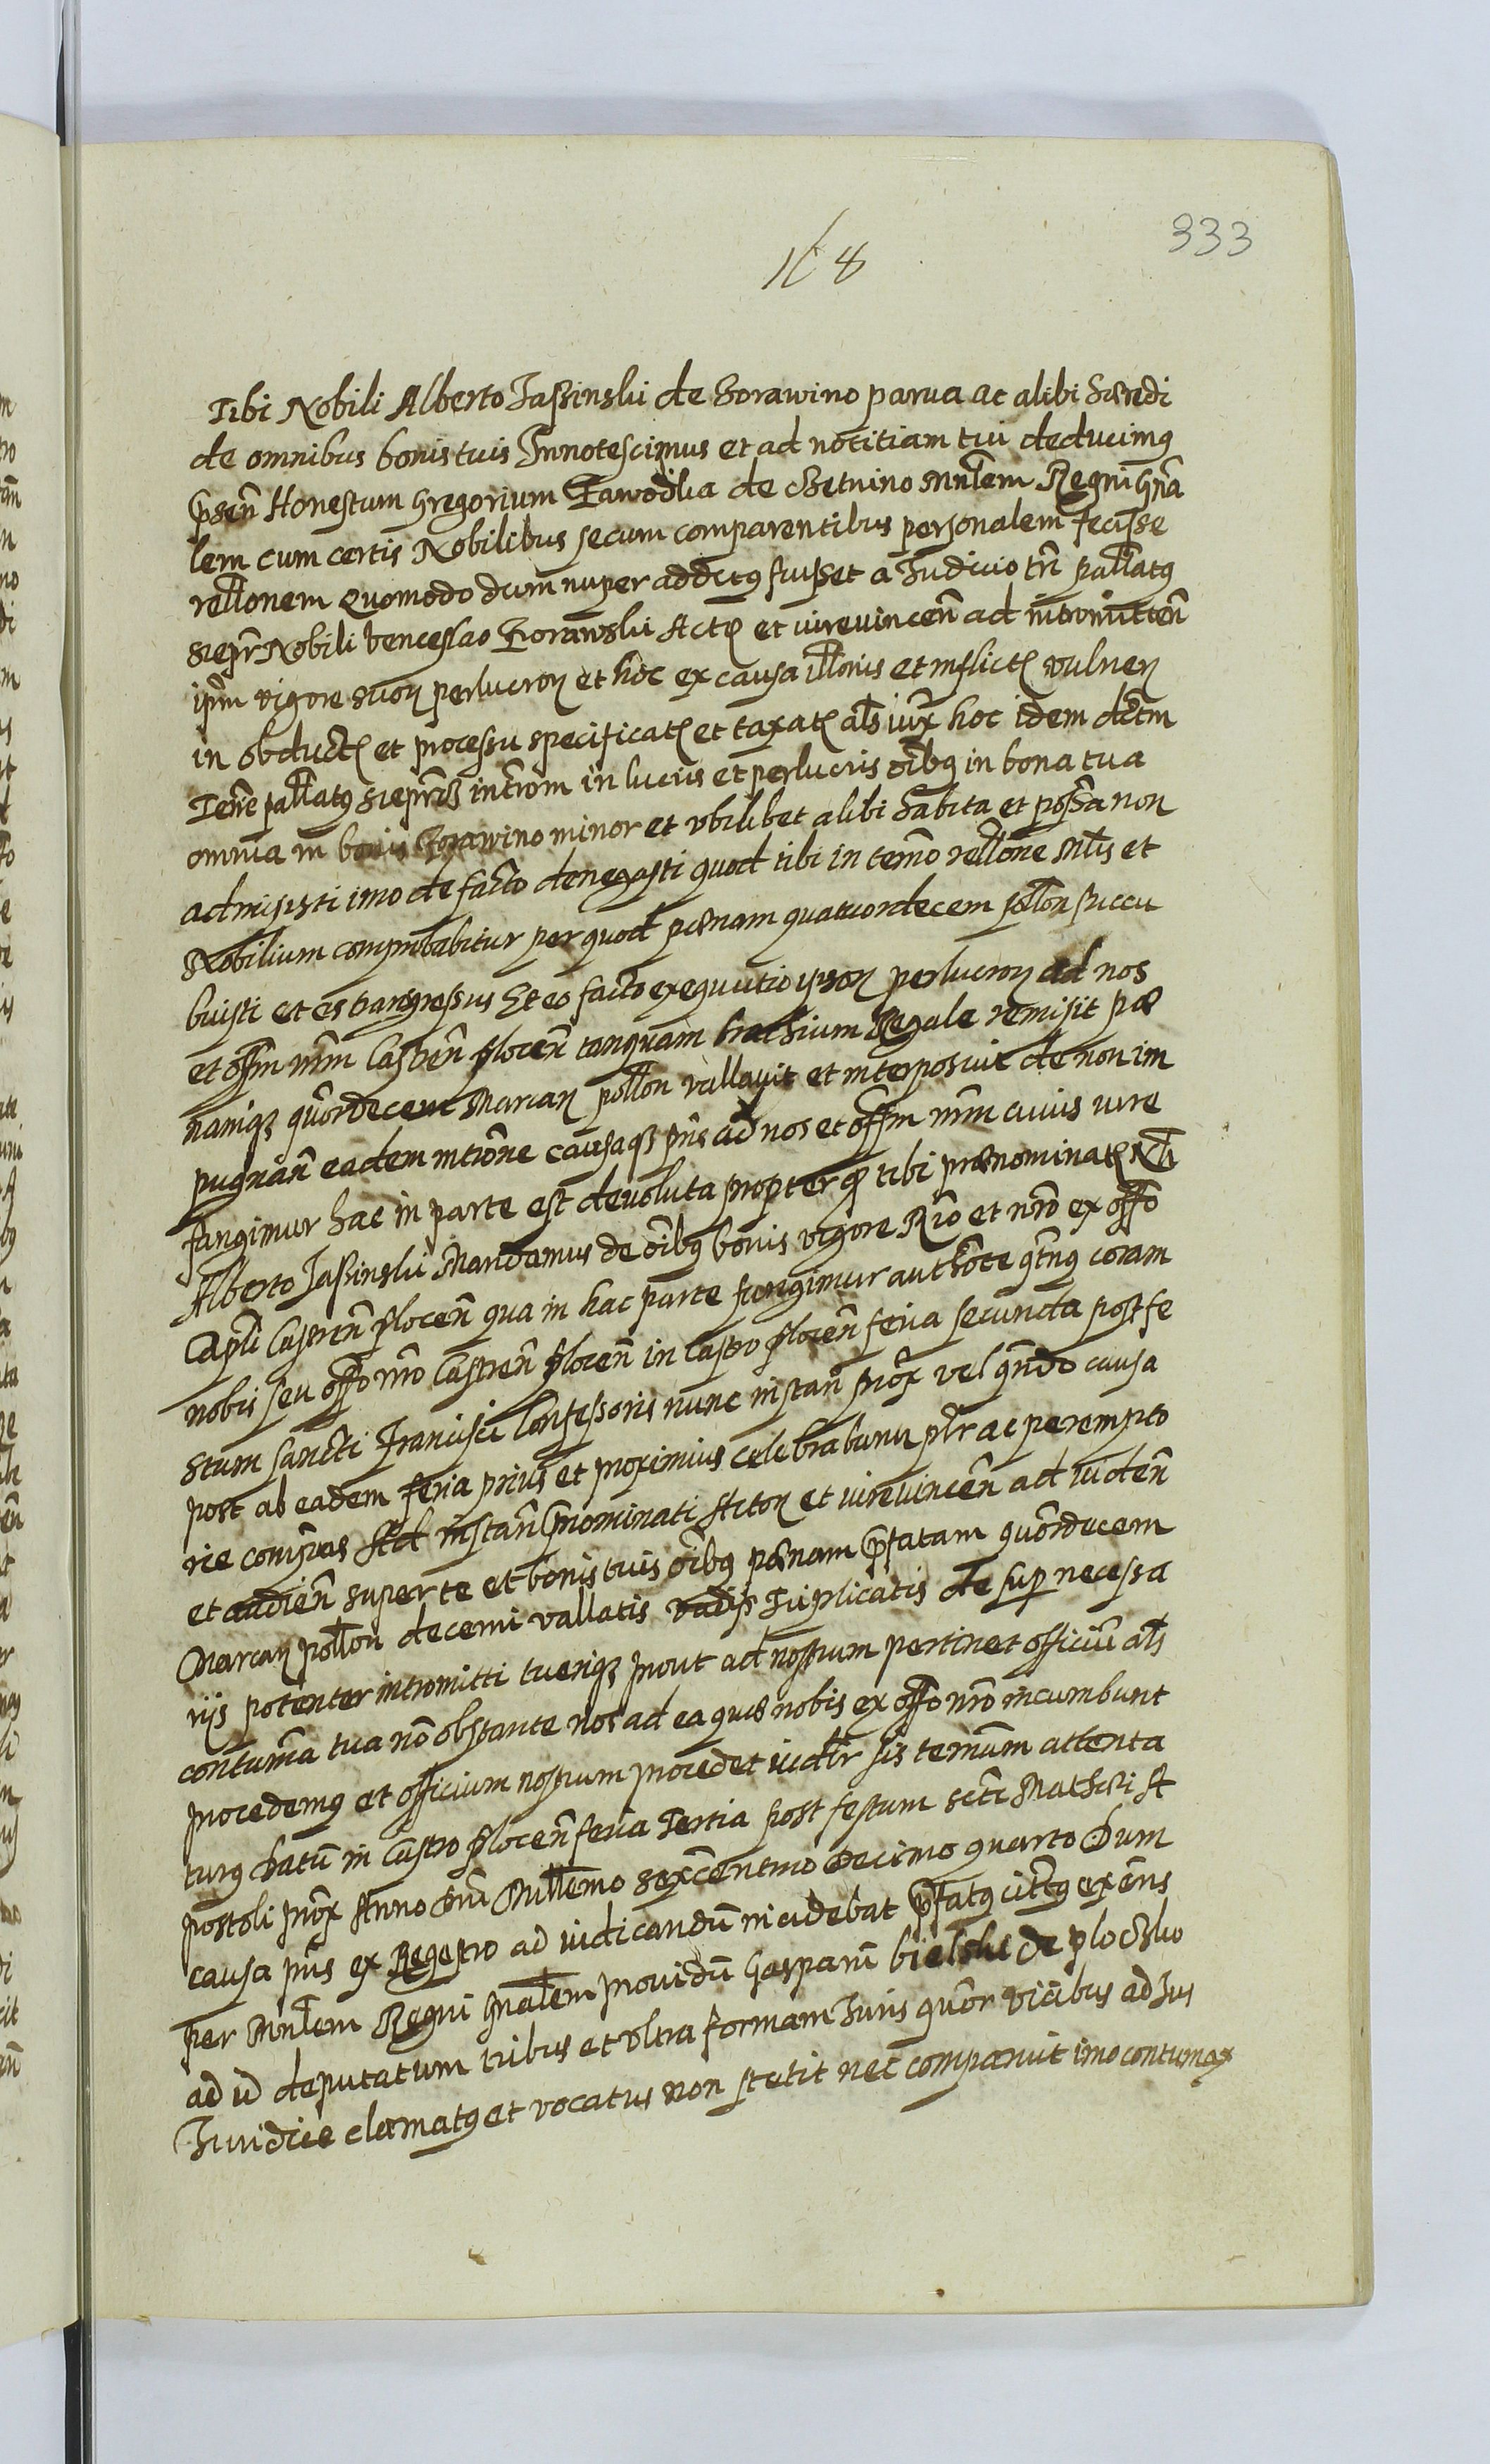 333
168
Tibi Nobili Alberto Jassinski de Zorawino parua ac alibi hæredi
de omnibus bonis tuis Innotescimus et ad notitiam tui deducimꝯ
p̄sen̄ Honestum Gregorium Zawodka de Chetnino Mn̄lem Regni Gn̄a
lem cum certis Nobilibus secum comparentibus personalem fecisse
rellonem Quomodo dum nuper additꝯ fuisset a Judicio trī pallatꝯ
siepr̄ Nobili Venceslao Zorawski Actꝭ et iurevincen̄ ad intromitten̄
ipm̄ vigore suoꝝ perlucroꝝ et hoc ex causa illonis et inflictꝭ vulneꝝ
in obductꝭ et processu specificatꝭ et taxatꝭ als̄ iux̄ hoc idem dctm̄
Terre pallatꝯ sieprēs intrōm in lucris et perlucris oībꝯ in bona tua
omnia in bonis Zorawino minor et vbilibet alibi habita et possā non
admisisti imo de facto denegasti quod tibi in termō rellōne Mn̄lis et
Nobilium comprobabitur per quod pænam quatuordecem pollon̄ succu
buisti et es transgressus Et eo facto exequutio ipsoꝝ perlucroꝝ ad nos
et offm̄ nrm̄ Castren̄ plocen̄ tanquam brachium Regale remisit pæ
namqꝫ quōrdecem Marcaꝝ pollon̄ vallavit et interposuit de non im
pugnan̄ eadem intrōne causaqꝫ pn̄s ad nos et offm̄ nrm̄ cuius iure
fungimur hac in parte est devoluta propter qđ tibi prænominatꝭ Nli
Alberto Jassinski Mandamus de oībꝯ bonis vigore Rīo et nrō ex offo
Capli Castren̄ plocen̄ qua in hac parte fungimur authōte qtnꝯ coram
nobis seu offo nrō Castren̄ plocen̄ in Castro plocen̄ feria secunda post fe
stum sancti Francisci Confessoris nunc instan̄ prox̄ vel qn̄do causa
post ab eadem feria prius et proximius celebrabunꝶ plr̄ ac perempto
rie compr̄as Ad instan̄ p̄nominati Actoꝝ et iurevincen̄ ad viden̄
et audien̄ super te et bonis tuis oībꝯ pænam p̄fatam quōrdecem
Marcaꝝ pollon̄ decerni vallatis vadijs triplicatis de sup necessa
rijs potenter intromitti tueriqꝫ prout ad nostrum pertinet officiū als̄
contumā tua nō obstante nos ad ea quæ nobis ex offo nrō incumbunt
procedemꝯ et officium nostrum procedet iudlr̄ sis termūm attenta
turꝯ Datū in Castro plocen̄ feria Tertia post festum scti Mathæi A
postoli prox̄ Anno Dn̄i Millemo sexcēntmo Decimo quarto Dum
causa pn̄s ex Regestro ad iudicandū incidebat p̄fatꝯ citātꝯ exēns
per Mn̄lem Regni Gnālem providū Gasparū Bielski de plochko
ad id deputatum tribus et vltra formam Juris quōr vicibus ad Jus
Juridice clamatꝯ et vocatus non stetit nec comparuit imo contumax